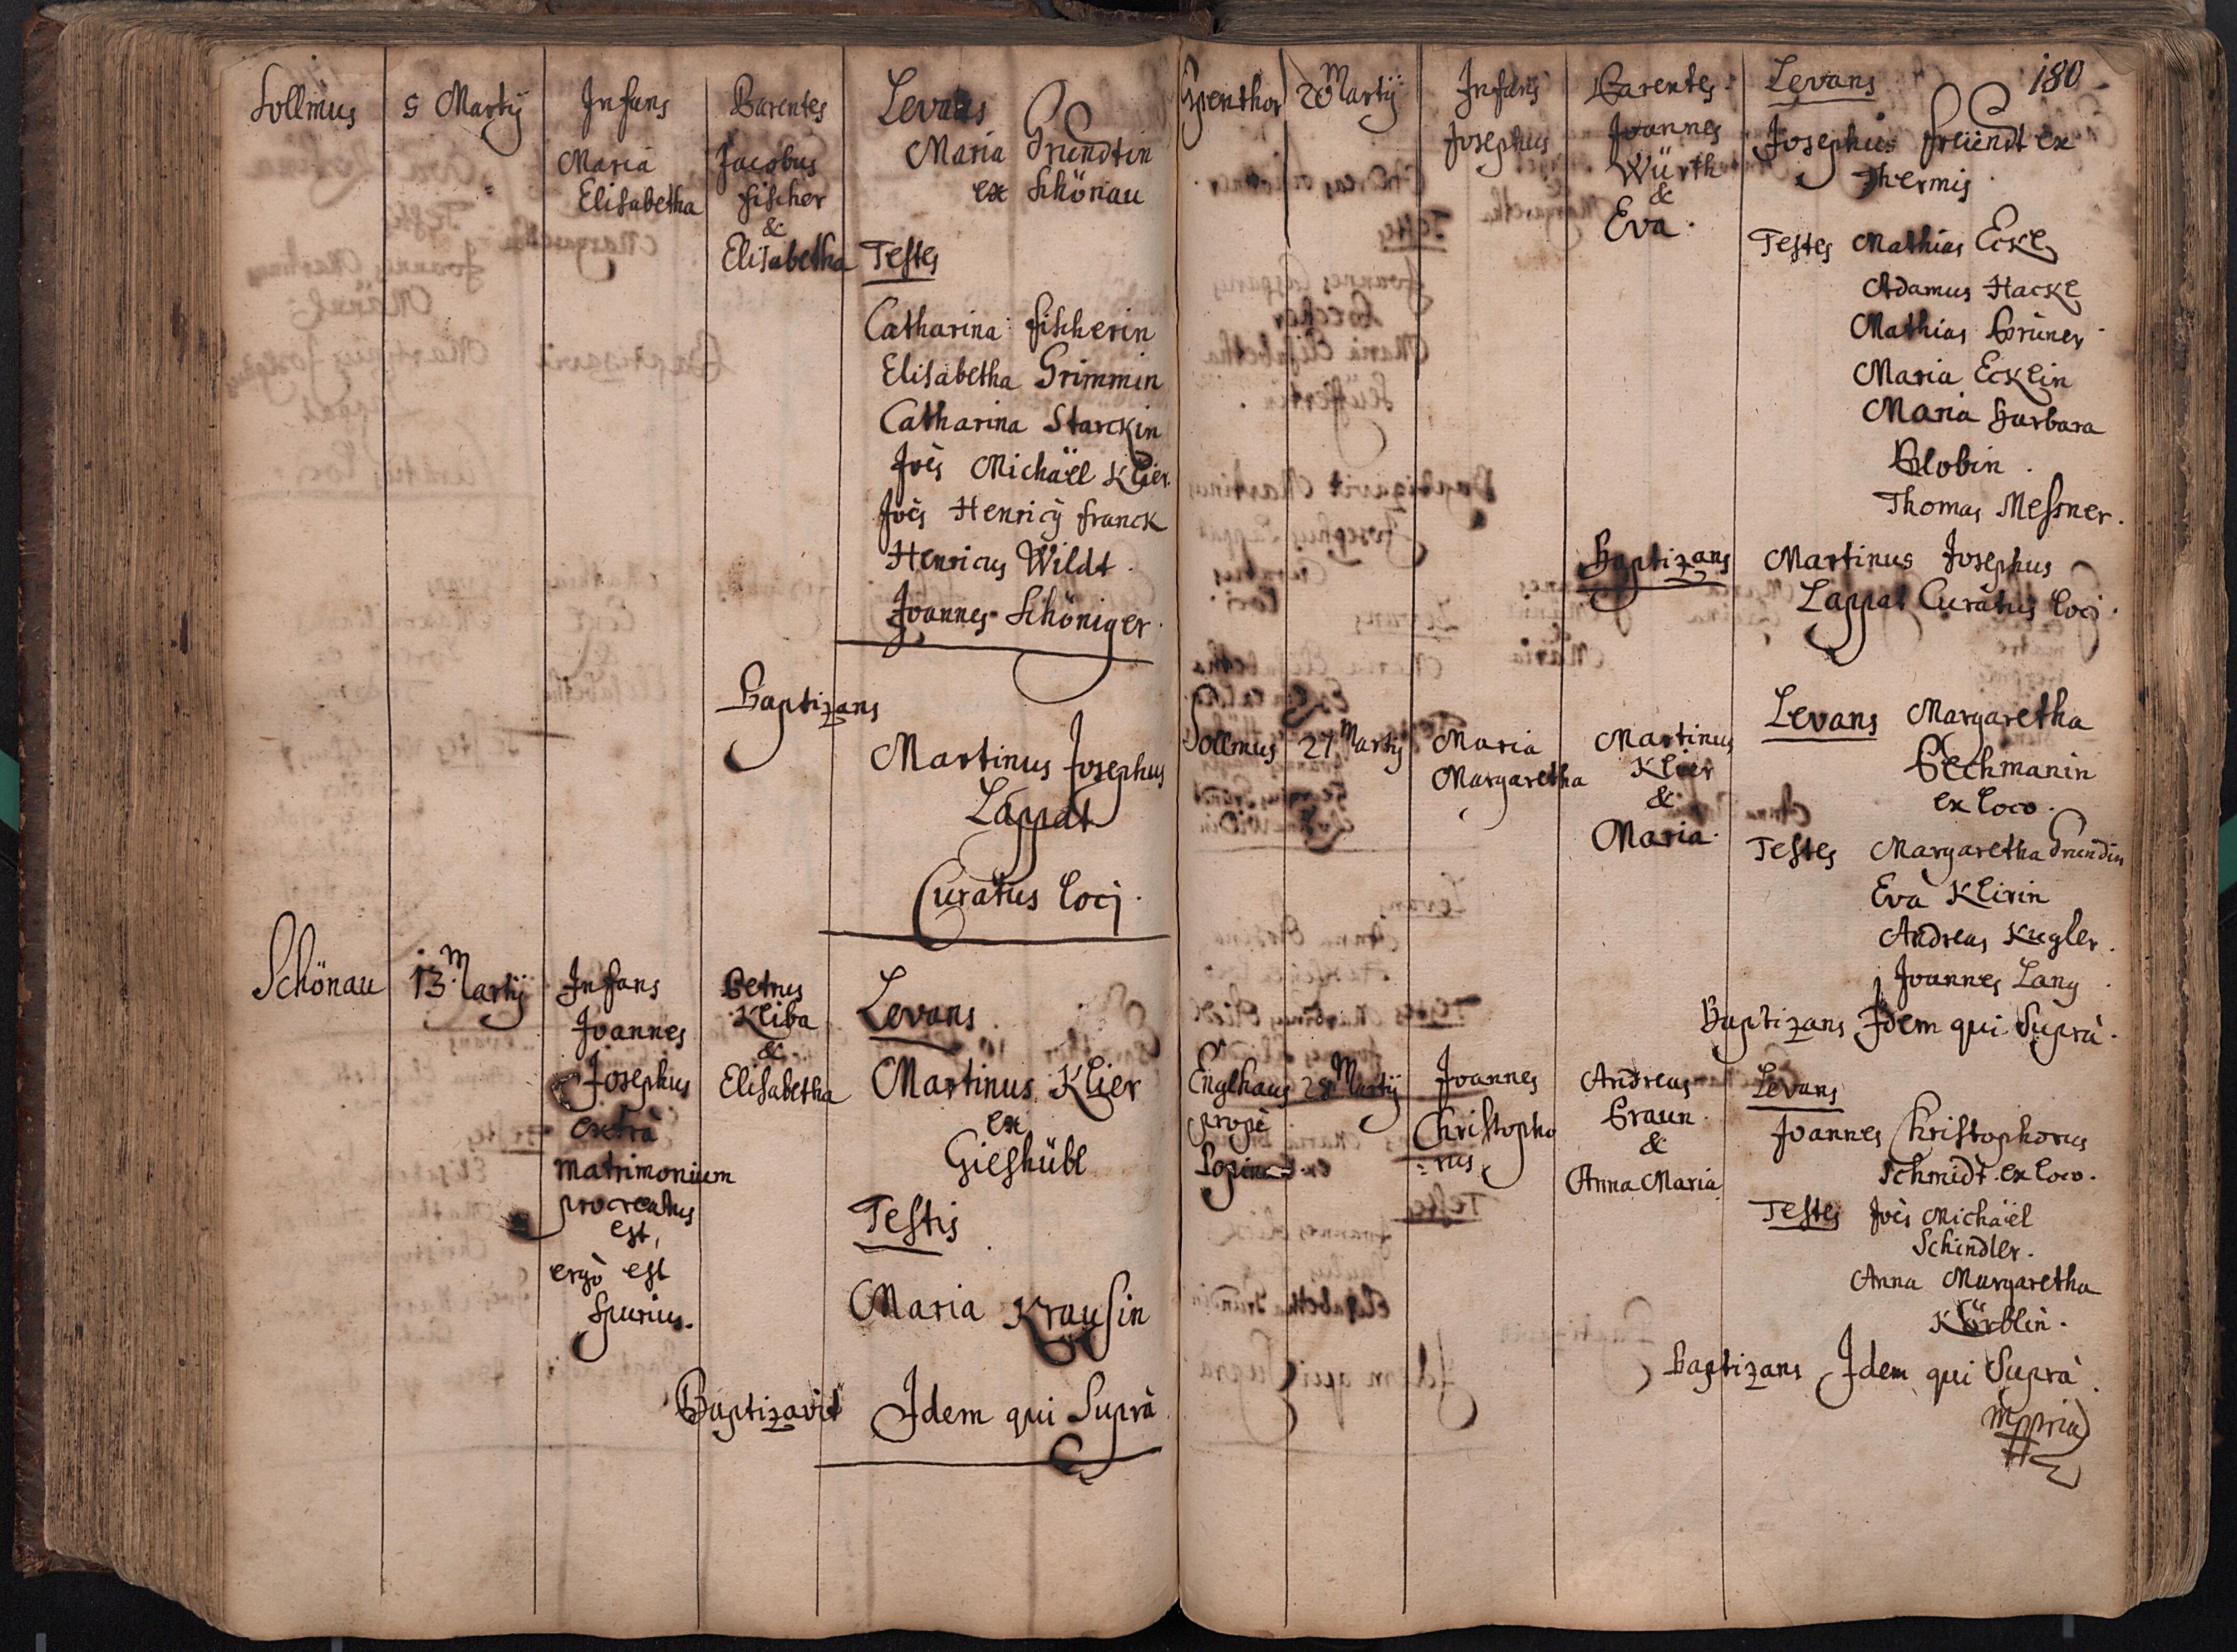 Sollmus 5 Martÿ Infans Parentes Levans
Maria Jacobus Maria Grundtin
Elisabetha fischer ex Schönau
&
Elisabetha Testes
Catharina fischerin
Elisabetha Grimmin
Catharina Starckin
Joes Michäel Klier.
Joes Henricÿ franck
Henricus Wildt.
Joannes Schöniger.
Baptizans
Martinus Josephus
Lappat
Curatus loci.
Schönau 13. Martÿ Infans Petrus Levans
Joannes Kliba
&
Josephus Elisabetha Martinus Klier
extrà ex
matrimonium Gieshübl
procreatus Testis
est,
ergò est
Spurius. Maria Krausin
Baptizavit Idem qui Suprà
180
20 Martÿ Infans Parentes Levans
Josephus Joannes Josephus freündt ex
Würth Thermis
&
Eva. Testes Mathias Eckl
Adamus Hackl
Mathias Brüner
Maria Ecklin
Maria Barbara
Globin.
Thomas Messner.
Baptizans Martinus Josephus
Lappat Curatus loci.
Levans Margaretha
Sollmus 27. Martÿ Maria Martinus Pechmanin
Margaretha Klier ex loco.
&
Maria. Testes Margaretha Grundin
Eva Klirin
Andreas Kugler.
Joannes Lang
Baptizans Idem qui Suprà.
Englhaus 28 Martÿ Joannes Andreas Levans
propè Christopho Braun. Joannes Christophorus
=rus & Schmidt ex loco.
Anna Maria Testes Joes Michäel
Schindler.
Anna Margaretha
Körblin.
Baptizans Idem qui Suprà
mppria